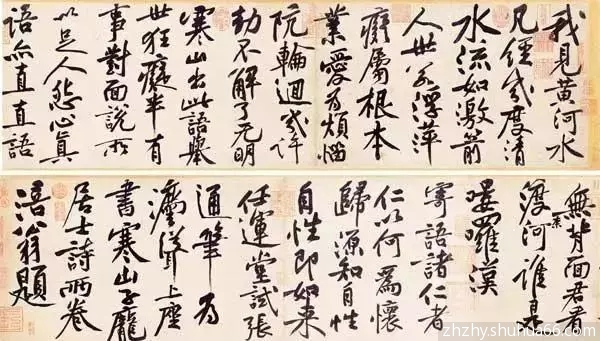 我見黃河水
凡經幾度清
水流如激箭
人世若浮萍
癡屬根本
業愛為煩惱
阬輪迴幾許
劫不解了无明
寒山出此語舉
世狂癡半有
事對面說所
以足人怨心真
語亦直直語
無背面君看
渡奈河誰是
嘍羅漢
寄語諸仁者
仁以何為懷
歸源知自性
自性即如来
任運堂試張
通筆為
灋聳上座
書寒山子龐
居士詩兩卷
涪翁題
zhzhy.shuhua66.com